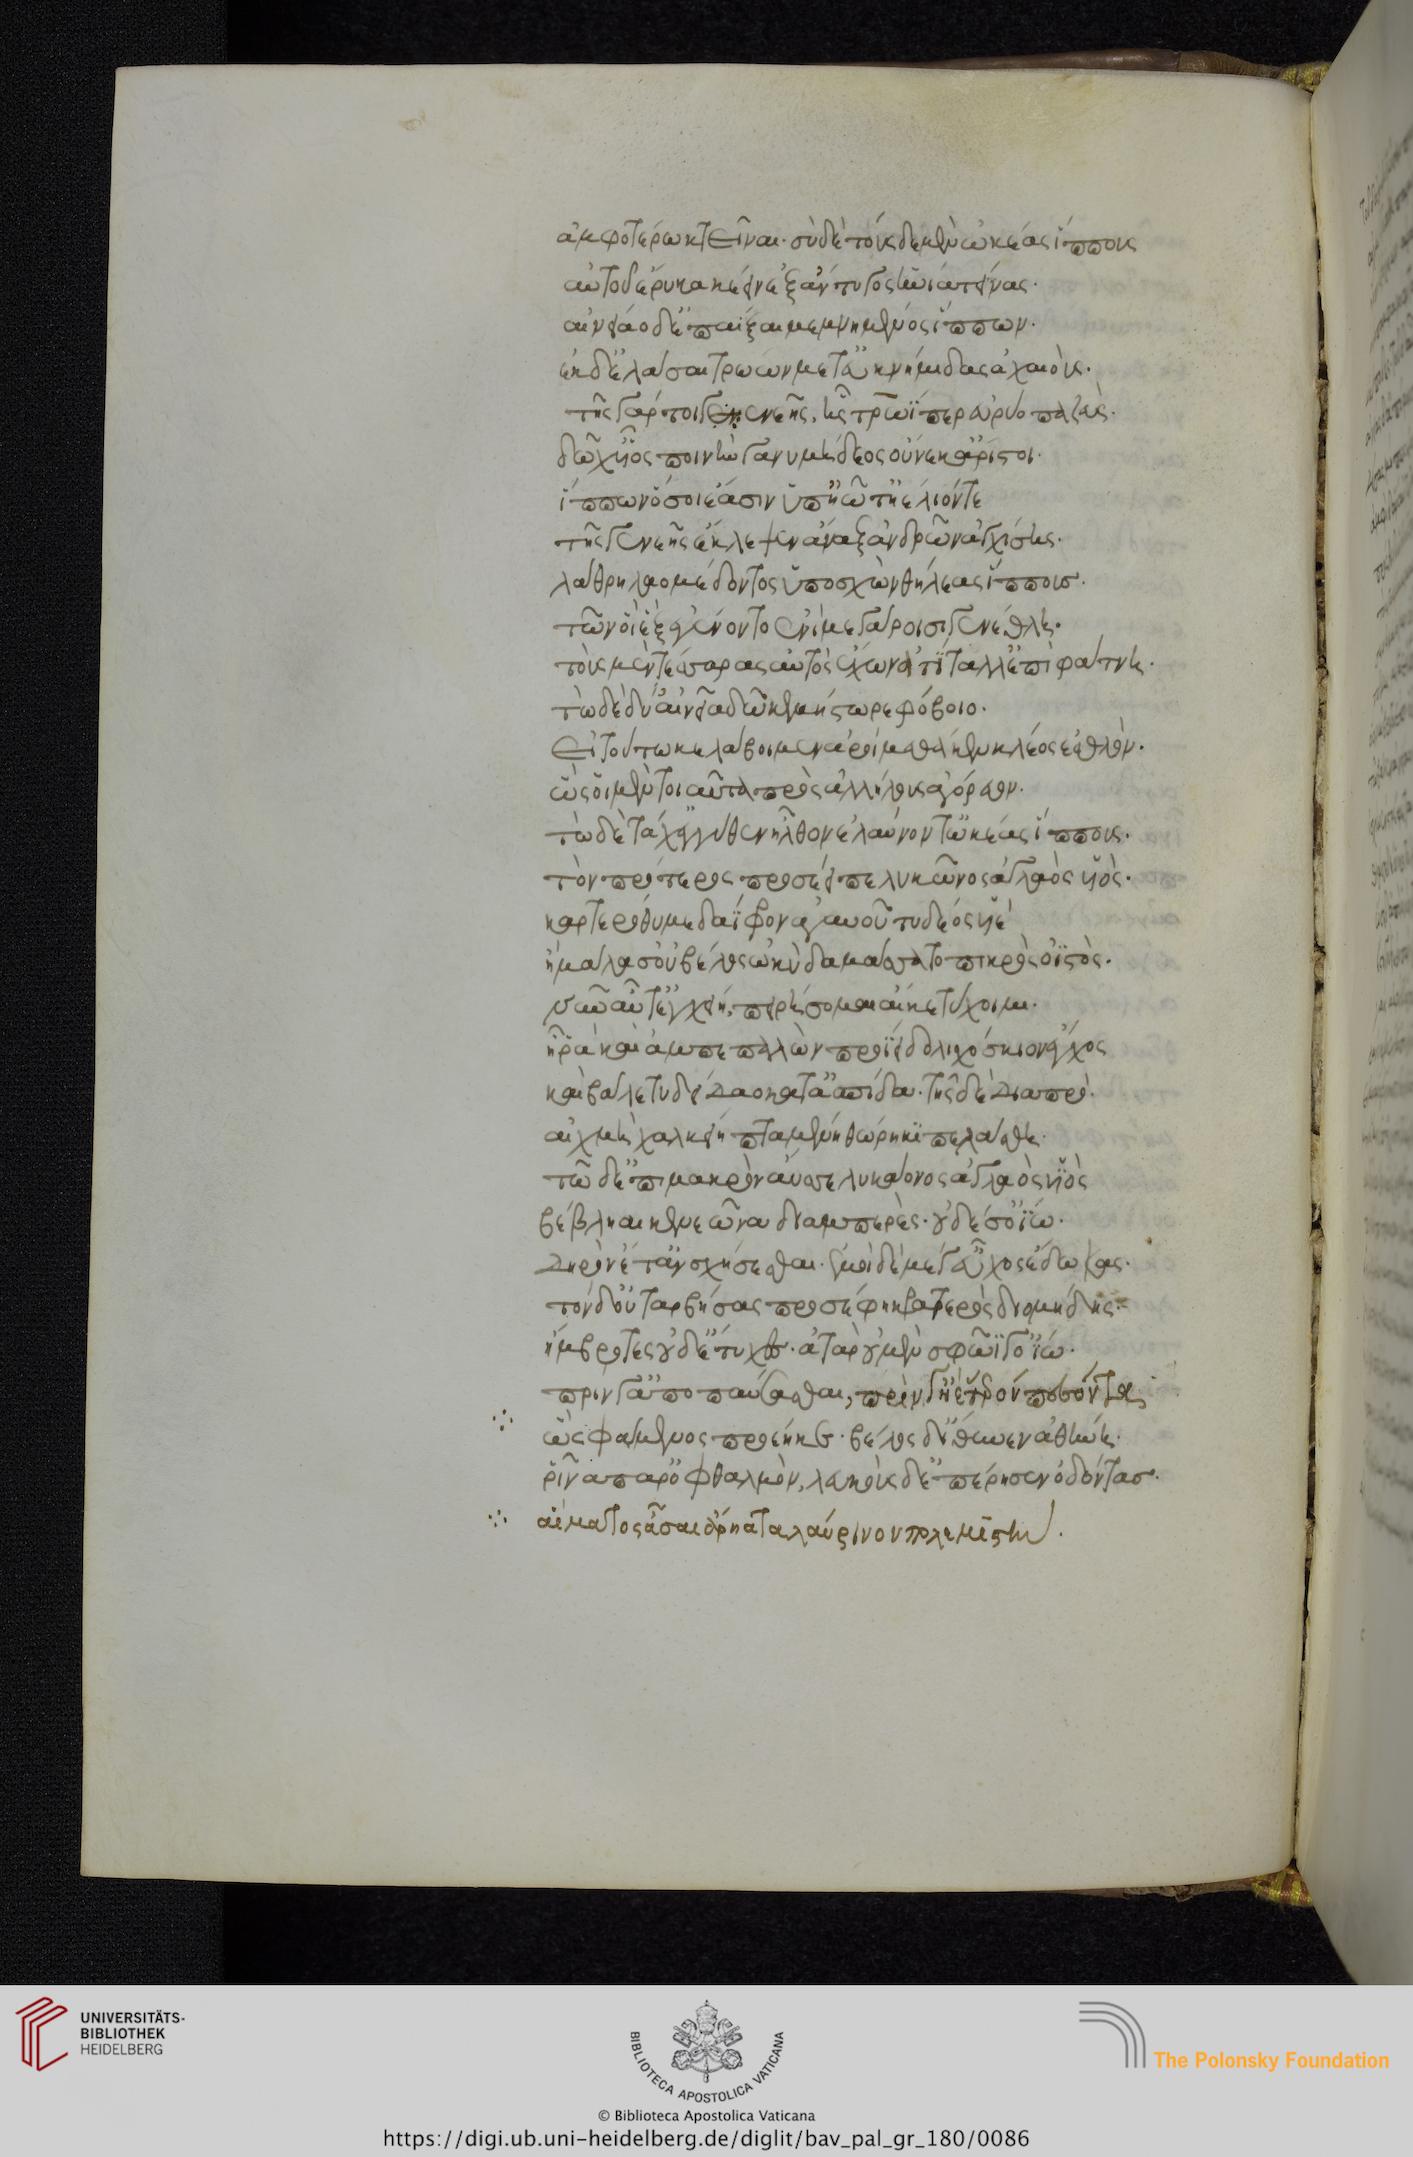 ἀμφοτέρω κτεῖναι· σὺ δὲ τούσδε μὲν ὠκέας ἵππους
αὐτοῦ ἐρυκακέειν ἐξ ἄντυγος ἡνία τείνας·
αἰνείαο δ' ἐπαΐξαι μεμνημένος ἵππων·
ἐκ δ' ἐλάσαι τρώων μετ' ἐϋκνήμιδας ἀχαιούς·
τῆς γάρ τοι γενεῆς, ἧς τρωΐ περ εὐρύοπα ζεὺς·
δῶχ' υἷος ποινὴν γανυμήδεος οὕνεκ' ἄριστοι·
ἵππων ὅσοι ἔασιν ὑπ' ἠῶ τ' ἠέλιόν τε
τῆς γενεῆς ἔκλεψεν ἄναξ ἀνδρῶν ἀγχίσης·
λάθρῃ λαομέδοντος ὑποσχὼν θήλεας ἵππους·
τῶν οἱ ἓξ ἐγένοντο ἐνὶ μεγάροισι γενέθλη·
τοὺς μὲν τέσσαρας αὐτὸς ἔχων ἀτίταλλ' ἐπὶ φάτνῃ·
τὼ δὲ δύ' αἰνείᾳ δῶκεν μήστωρε φόβοιο·
εἰ τούτω κε λάβοιμεν ἀροίμεθά κεν κλέος ἐσθλόν·
ὣς οἱ μὲν τοιαῦτα πρὸς ἀλλήλους ἀγόρευον·
τὼ δὲ τάχ' ἐγγύθεν ἦλθον ἐλαύνοντ' ὠκέας ἵππους·
τὸν πρότερος προσέειπε λυκάονος ἀγλαὸς υἱὸς·
καρτερόθυμε δαΐφρον ἀγαυοῦ τυδέος υἱὲ
ἦ μάλα σ' οὐ βέλος ὠκὺ δαμάσσατο πικρὸς ὀϊστὸς·
νῦν αὖτ' ἐγχείῃ πειρήσομαι αἴ κε τύχοιμι·
ἦ ῥα καὶ ἀμπεπαλὼν προΐει δολιχόσκιον ἔγχος
καὶ βάλε τυδείδαο κατ' ἀσπίδα· τῆς δὲ διαπρὸ·
αἰχμὴ χαλκείη πταμένη θώρηκι πελάσθη·
τῷ δ' ἐπὶ μακρὸν ἄυσε λυκάονος ἀγλαὸς υἱὸς
βέβληαι κενεῶνα διαμπερὲς· οὐδέ σ' ὀΐω·
δηρὸν ἔτ' ἀνσχήσεσθαι· ἐμοὶ δὲ μέγ' εὖχος ἔδωκας·
τὸν δ' οὐ ταρβήσας προσέφη κρατερὸς διομήδης·
ἤμβροτες οὐδ' ἔτυχες· ἀτὰρ οὐ μὲν σφῶΐ γ' ὀΐω·
πρίν γ' ἀποπαύσεσθαι, πρίν γ' ἢ ἕτερόν γε πεσόντα
ὣς φάμενος προέηκε· βέλος δ' ἴθυνεν ἀθήνη·
ῥῖνα παρ' ὀφθαλμὸν, λευκοὺς δ' ἐπέρησεν ὀδόντας·
αἵματος ἆσαι ἄρηα ταλαύρινον πολεμιστήν·
UNIVERSITÄTS-
BIBLIOTHEK
HEIDELBERG
BIBLIOTECA APOSTOLICA VATICANA
The Polonsky Foundation
© Biblioteca Apostolica Vaticana
https://digi.ub.uni-heidelberg.de/diglit/bav_pal_gr_180/0086